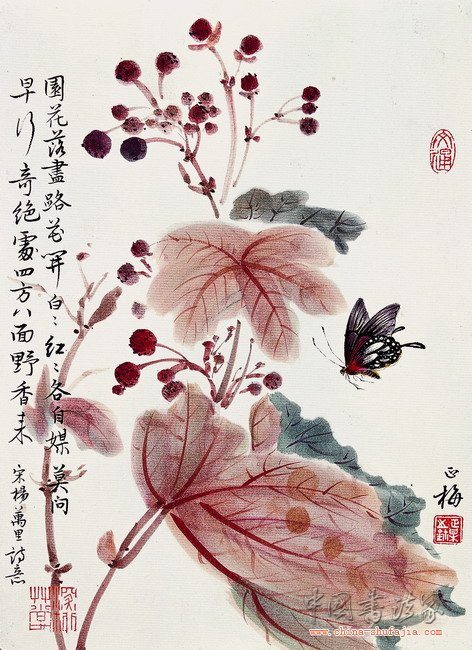 園花落盡路花开白〻紅〻各自媒莫问
早行奇绝處四方八面野香来
宋楊萬里詩意
正梅
中国书法家
www.china-shufajia.com